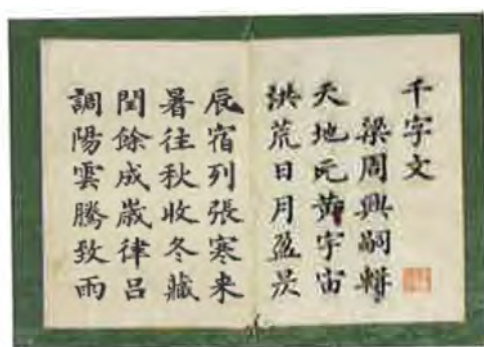 千字文
梁周興嗣
天地元黄宇宙
洪荒日月盈昃
辰宿列張寒来
暑往秋收冬藏
閏餘成歲律吕
調陽雲騰致雨